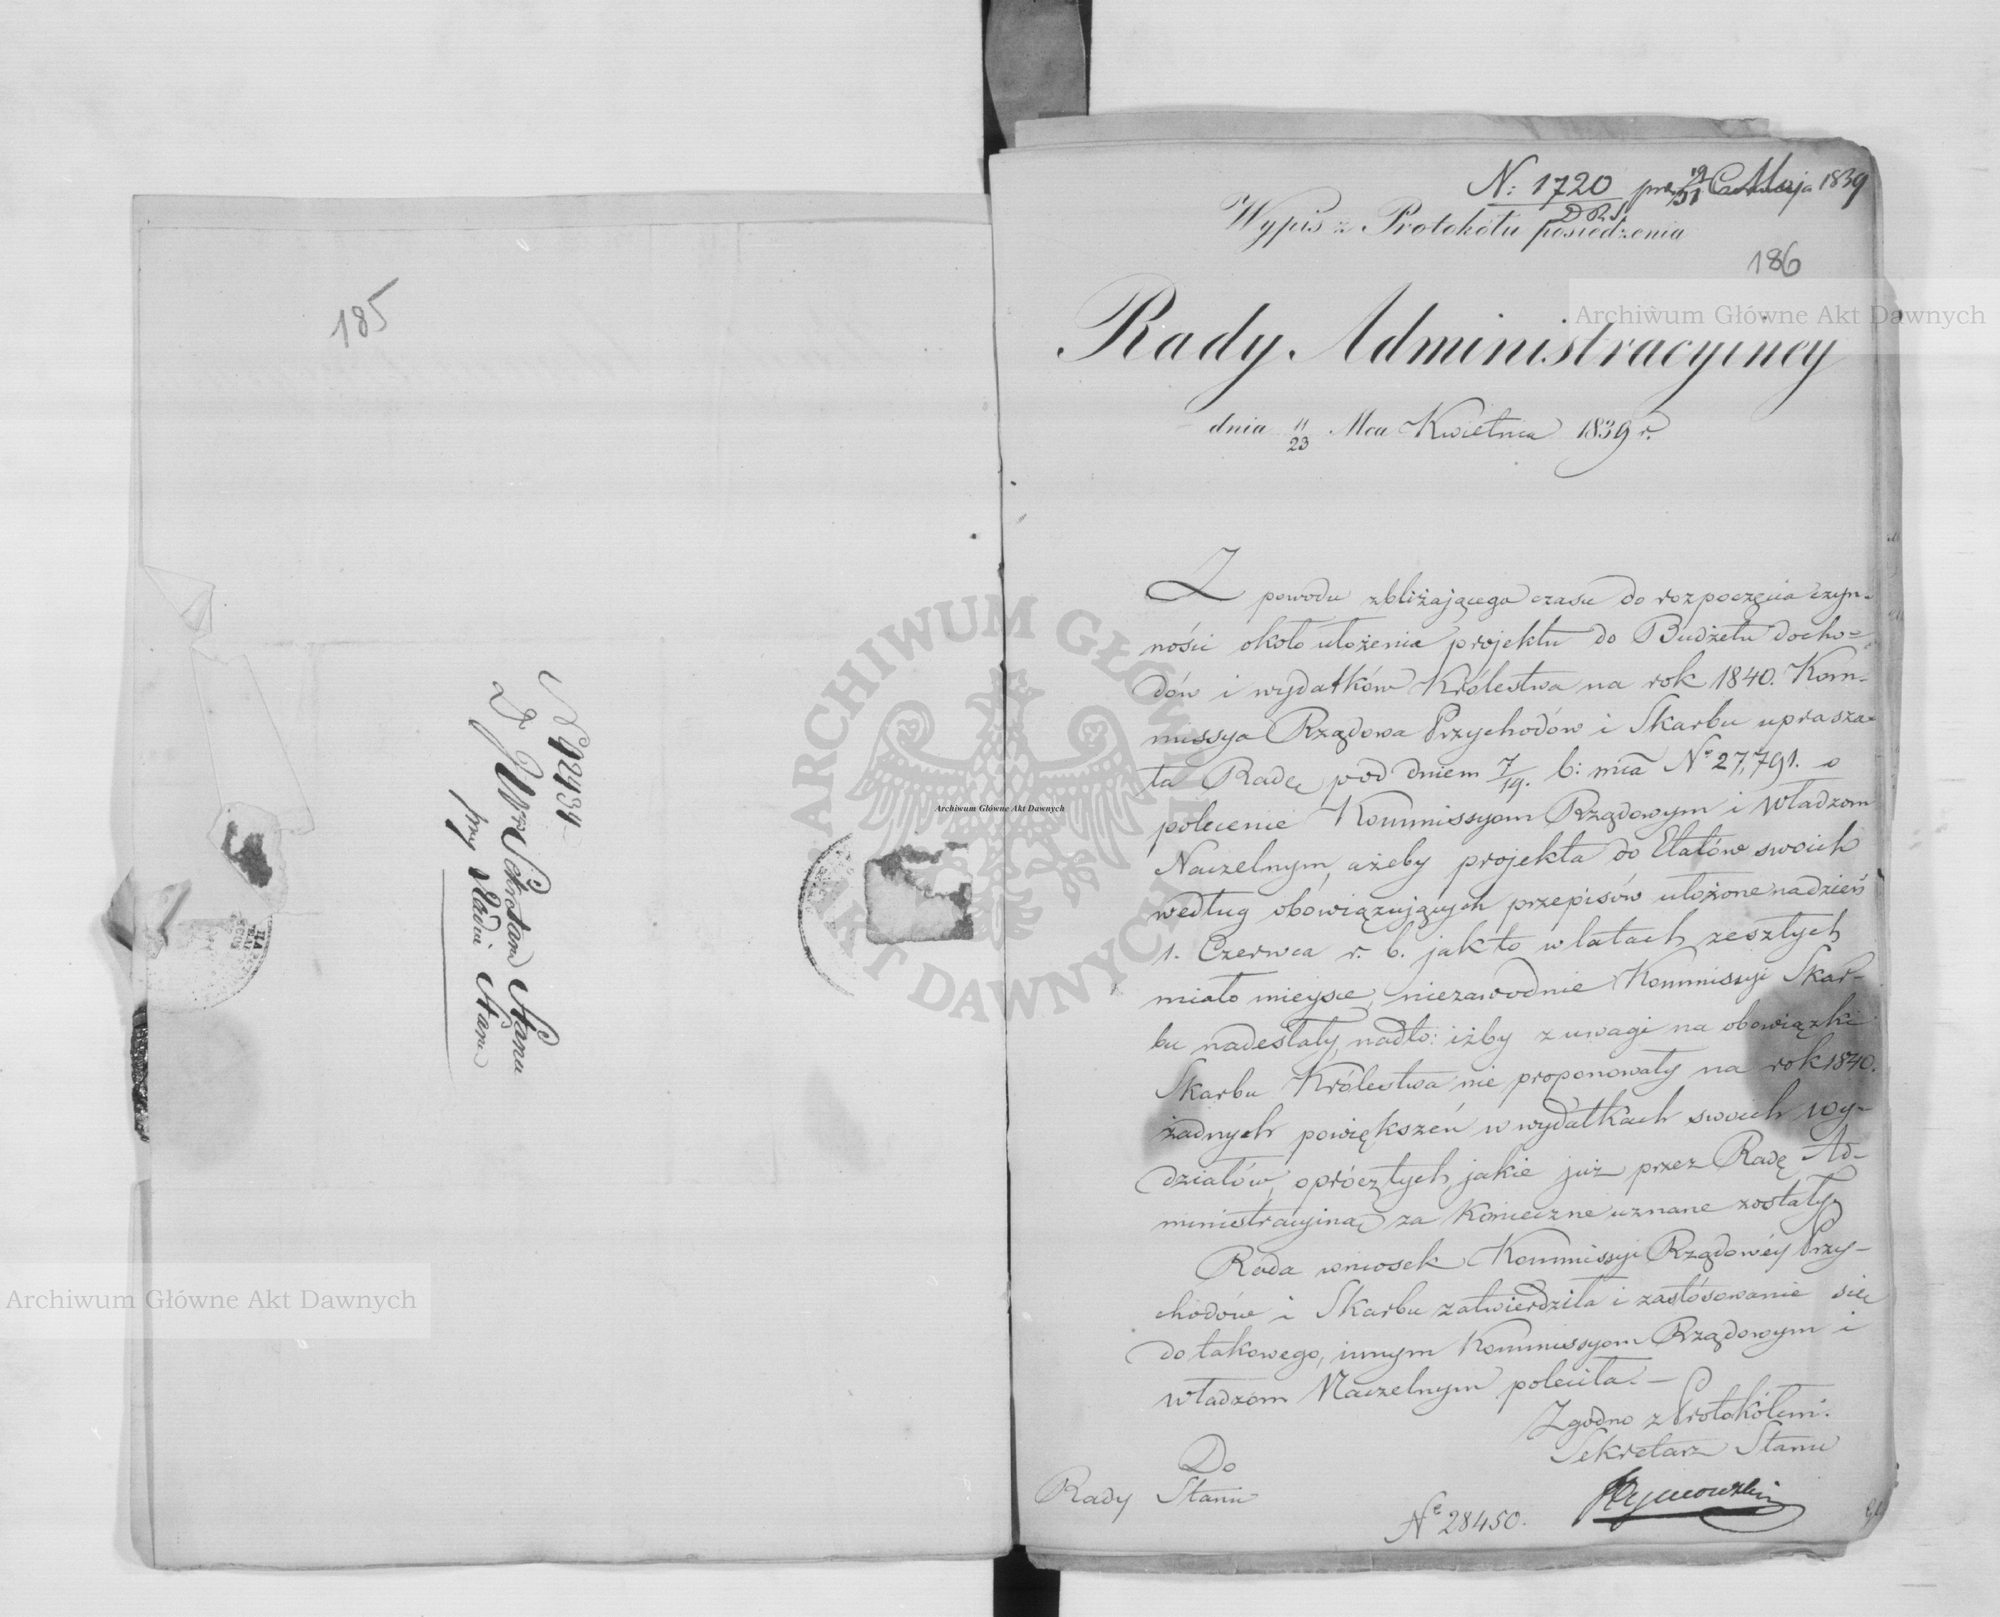 185
N 9434
D JW Sekretarza Stanu
przy Radzie Stanu
N: 1720 Maja 1839
D.R.S.
Wypis z Protokółu posiedzenia
186
Rady Administracyiney
dnia 11/23 Mca Kwietnia 1839 r.
Z powodu zbliżającego czasu do rozpoczęcia czyn-
ności około ułożenia projektu do Budżetu docho-
dów i wydatków Królestwa na rok 1840. Kom-
missya Rządowa Przychodów i Skarbu uprasza-
ła Radę pod dniem 7/19. b: mca No 27,791. o
polecenie Kommissyom Rządowym i Władzom
Naczelnym, ażeby projekta do Etatów swoich
według obowiązujących przepisów ułożone na dzień
1. Czerwca r. b. jak to w latach zeszłych
miało mieysce, niezawodnie Kommissyi Skar-
bu nadesłały, nadto: iżby z uwagi na obowiązki
Skarbu Królestwa nie proponowały na rok 1840.
żadnych powiększeń w wydatkach swoich Wy-
działów, oprócz tych, jakie już przez Radę Ad-
ministracyiną za konieczne uznane zostały.
Rada wniosek Kommissyi Rządowéy Przy-
chodów i Skarbu zatwierdziła i zastósowanie się
do takowego, innym Kommissyom Rządowym i
Władzom Naczelnym poleciła. –
Zgodno z Protokółem.
Sekretarz Stanu
Do
Rady Stanu
No 28450.
Archiwum Główne Akt Dawnych
Archiwum Główne Akt Dawnych
Archiwum Główne Akt Dawnych
ARCHIWUM GŁÓWNE AKT DAWNYCH